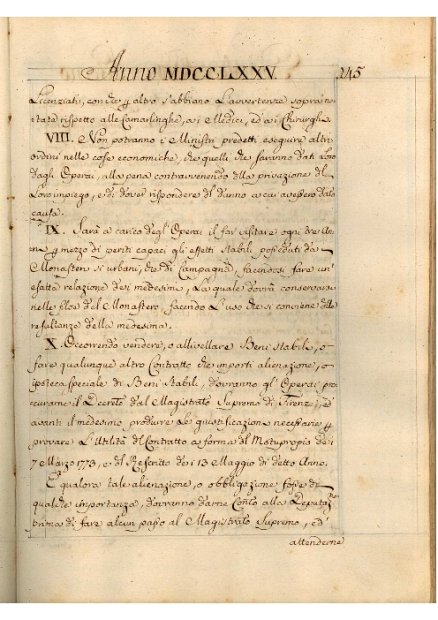 Anno MDCCLXXV. 245
Licenziati, con che g altro s'abbiano l'avvertenze sopra no
tate rispetto alle Camarlinghe, a i Medici, ed a i Chirurghi.
VIII. Non potranno i Ministri predetti eseguire altri
ordini nelle cose economiche, che quelli che saranno dati loro
dagli Operai, alla pena contravvenendo della privazione del
Loro impiego, e di dover rispondere del danno a cui avessero dato
causa.
IX. Sarà a carico degl' Operai il far visitare ogni tre An
ni g mezzo di periti capaci gli effetti stabili posseduti da
Monasteri sì urbani, che di Campagna, facendosi fare un'
esatta relazione dei medesimi, La quale dovrà conservarsi
nelle filze del Monastero facendo l'uso che si conviene delle
resultanze della medesima.
X. Occorrendo vendere, o allivellare Beni stabili, o
fare qualunque altro Contratto che importi alienazione, o
ipoteca speciale di Beni Stabili, dovranno gl' Operai pro
curarne il Decreto dal Magistrato Supremo di Firenze, ed
avanti il medesimo produrre le giustificazioni necessarie g
provare l'Utilità del Contratto a forma del Motuproprio de i
7 Marzo 1773, e del Rescritto de i 13 Maggio di detto Anno.
E qualora tale alienazione, o obbligazione fosse di
qualche importanza, dovranno darne Conto alla Deputaz.ne
prima di fare alcun passo al Magistrato Supremo, ed'
attenderne